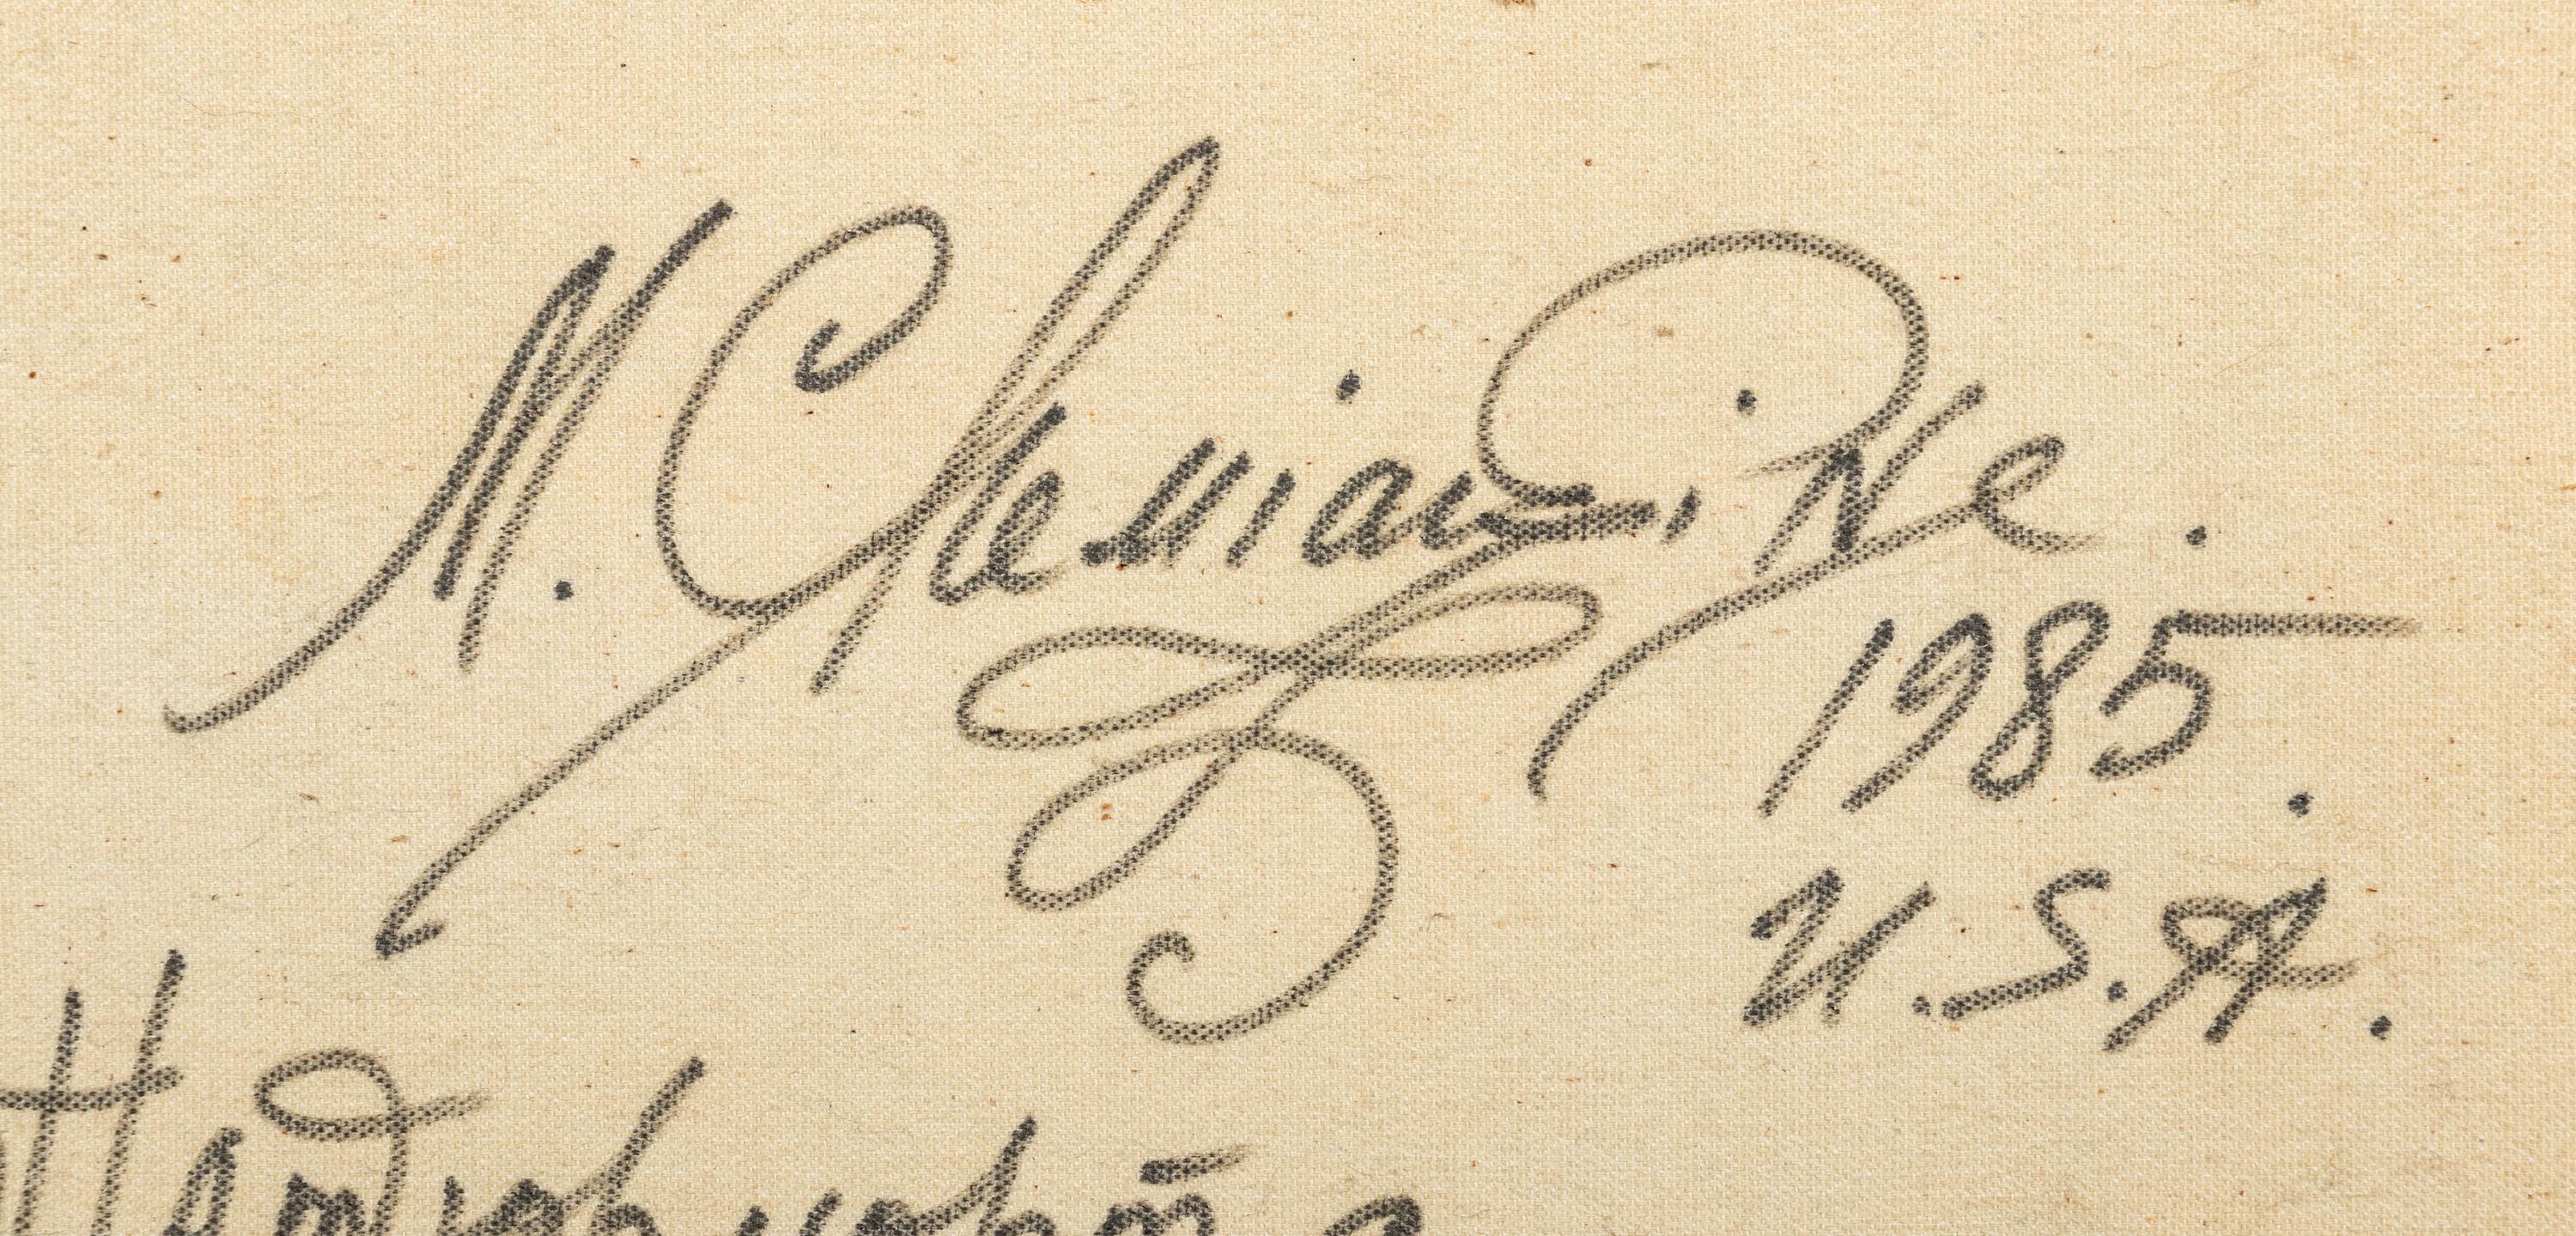 M. Chemiakine.
1985.
U.S.A.